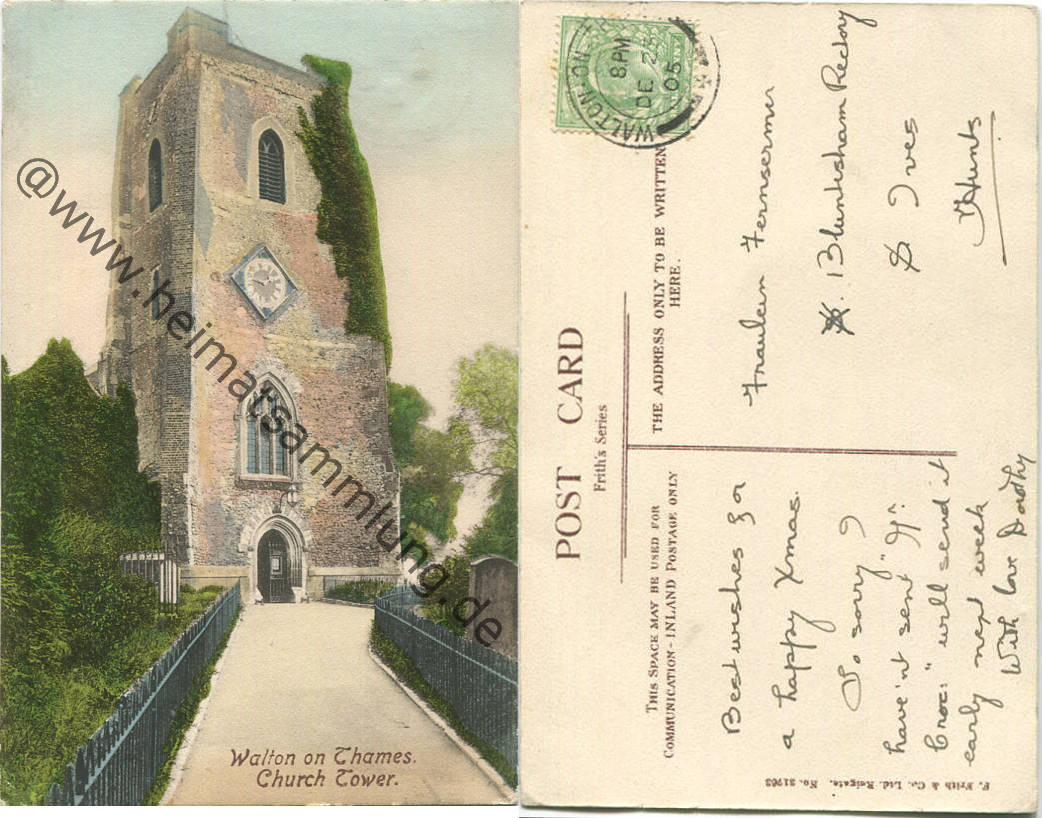 @www.heimatsammlung.de
Walton on Thames.
Church Tower.
WALTON-ON-
8 PM
DE 23
05
POST CARD
Frith's Series
THIS SPACE MAY BE USED FOR
COMMUNICATION - INLAND POSTAGE ONLY
THE ADDRESS ONLY TO BE WRITTEN
HERE.
Fraulein
Bluntisham Rectory
S Ives
Hunts
Best wishes for
a happy Xmas.
So sorry I
have'nt sent "Yr.
Croc:" will send it
early next week
With love Dorothy
F. Frith & Co. Ltd. Reigate. No. 31763